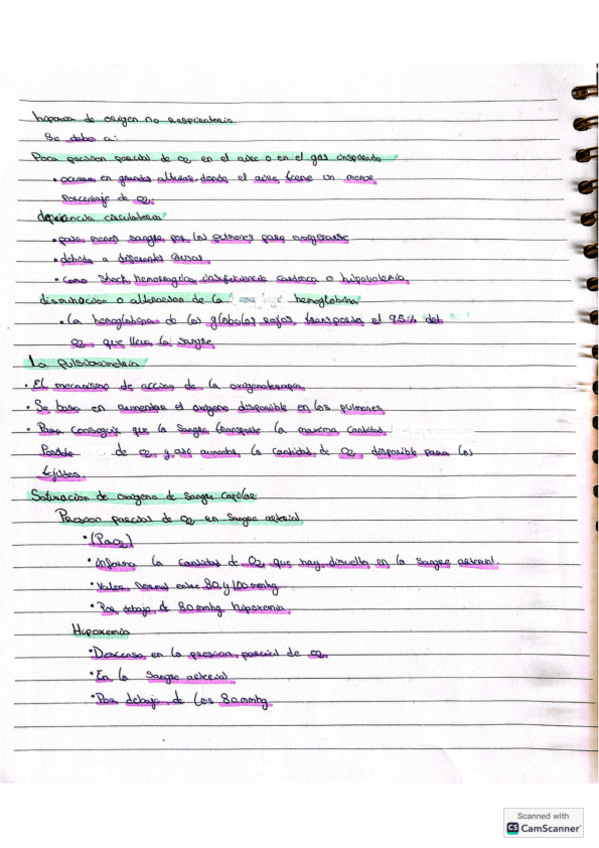 hipoxia de origen no respiratorio.
Se debe a:
Poca presion parcial de O2 en el aire o en el gas inspirado
• pasa en grandes alturas, donde el aire tiene un menor
porcentaje de O2.
deficiencia circulatoria
• pasa menos sangre por los pulmones para oxigenarse
• debido a diferentes causas
• como shock hemorragico, insuficiencia cardiaca o hipovolemia
disminucion o alteracion de la hemoglobina
• La hemoglobina de los globulos rojos, transporta el 95% del
O2 que lleva la sangre
La pulsioximetria
• El mecanismo de accion de la oxigenoterapia
• Se basa en aumentar el oxigeno disponible en los pulmones
• Para conseguir que la sangre transporte la maxima cantidad
Posible de O2 y asi aumenta la cantidad de O2 disponible para los
tejidos.
Saturacion de oxigeno de sangre capilar
Presion parcial de O2 en sangre arterial
• (PaO2)
• informa la cantidad de O2 que hay disuelto en la sangre arterial.
• Valor normal entre 80 y 100 mmHg
• Por debajo de 80 mmhg hipoxemia
Hipoxemia
• Descenso en la presion parcial de O2
• En la sangre arterial
• Por debajo de los 80mmhg
Scanned with
CS CamScanner